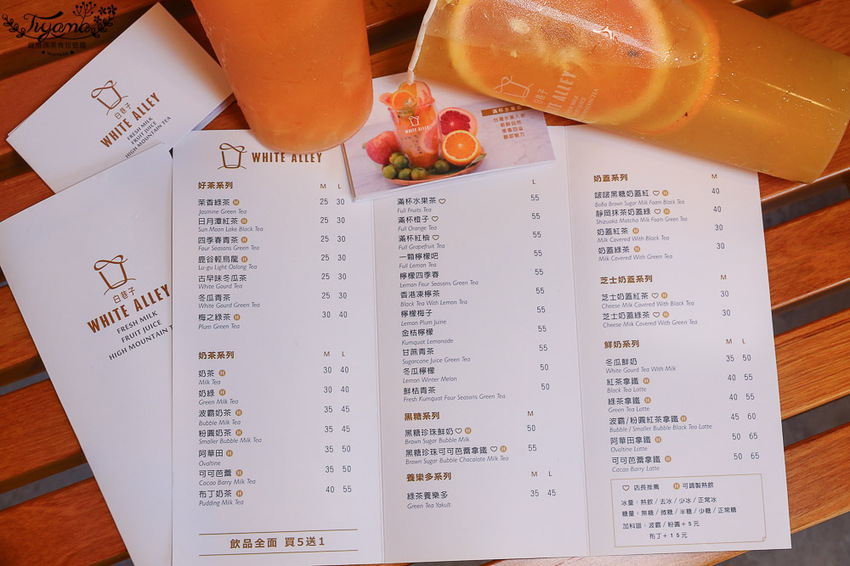 Tiyama
白巷子
WHITE ALLEY
FRESH MILK
FRUIT JUICE
HIGH MOUNTAIN TEA
白巷子
WHITE ALLEY
FRESH MILK
FRUIT JUICE
HIGH MOUNTAIN T
WHITE ALLEY
好茶系列 M L
茉香綠茶 H 25 30
Jasmine Green Tea
日月潭紅茶 H 25 30
Sun Moon Lake Black Tea
四季春青茶 H 25 30
Four Seasons Green Tea
鹿谷輕烏龍 H 25 30
Lu-gu Light Oolong Tea
古早味冬瓜茶 25 30
White Gourd Tea
冬瓜青茶 25 30
White Gourd Green Tea
梅之綠茶 H 30 40
Plum Green Tea
奶茶系列 M L
奶茶 H 30 40
Milk Tea
奶綠 H 30 40
Green Milk Tea
波霸奶茶 H 35 45
Bubble Milk Tea
粉圓奶茶 H 35 45
Smaller Bubble Milk Tea
阿華田 H 35 50
Ovaltine
可可芭蕾 H 35 50
Cocoa Barry Milk Tea
布丁奶茶 H 40 55
Pudding Milk Tea
飲品全面 買5送1
WHITE ALLEY
L
滿杯水果茶 55
Full Fruits Tea
滿杯橙子 55
Full Orange Tea
滿杯紅柚 55
Full Grapefruit Tea
一顆檸檬吧 55
Full Lemon Tea
檸檬四季春 55
Lemon Four Seasons Green Tea
香港凍檸茶 55
Black Tea With Lemon Tea
檸檬梅子 55
Lemon Plum Juine
金桔檸檬 55
Kumquat Lemonade
甘蔗青茶 55
Sugarcane Juice Green Tea
冬瓜檸檬 50
Lemon Winter Melon
鮮桔青茶 50
Fresh Kumquat Four Seasons Green Tea
黑糖系列 M
黑糖珍珠鮮奶 H 50
Brown Sugar Bubble Milk
黑糖珍珠可可芭蕾拿鐵 H 55
Brown Sugar Bubble Chocolate Milk Tea
養樂多系列 M L
綠茶養樂多 35 45
Green Tea Yakult
WHITE ALLEY
奶蓋系列 M
啵啵黑糖奶蓋紅 H 40
BoBa Brown Sugar Milk Foam Black Tea
靜岡抹茶奶蓋綠 H 50
Shizuoka Matcha Milk Foam Green Tea
奶蓋紅茶 H 40
Milk Covered With Black Tea
奶蓋綠茶 H 40
Milk Covered With Green Tea
芝士奶蓋系列 M
芝士奶蓋紅茶 H 40
Cheese Milk Covered With Black Tea
芝士奶蓋綠茶 H 40
Cheese Milk Covered With Green Tea
鮮奶系列 M L
冬瓜鮮奶 35 50
White Gourd Tea With Milk
紅茶拿鐵 H 40 55
Black Tea Latte
綠茶拿鐵 H 40 55
Green Tea Latte
波霸/粉圓紅茶拿鐵 H 45 60
Bubble / Smaller Bubble Black Tea Latte
阿華田拿鐵 H 50 65
Ovaltine Latte
可可芭蕾拿鐵 H 50 65
Cacao Barry Latte
店長推薦 H 可調製熱飲
冰量:熱飲/去冰/少冰/正常冰
糖量:無糖/微糖/半糖/少糖/正常糖
加料區:波霸/粉圓+5元
布丁+15元